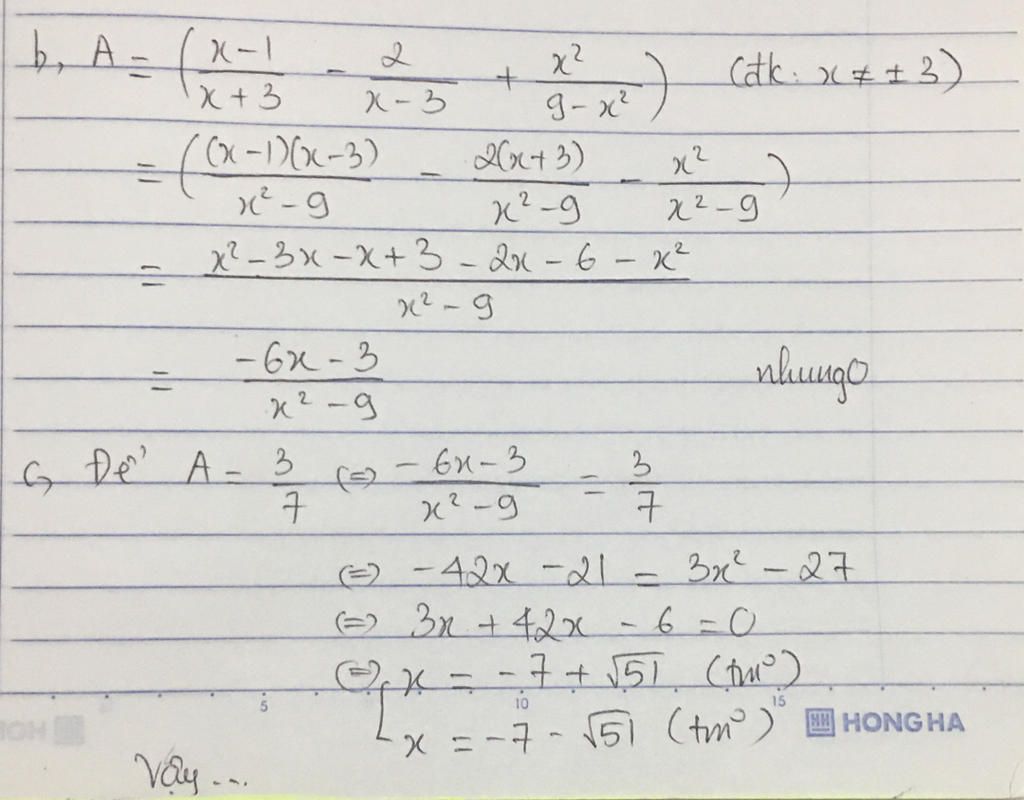 b, A = ( (x-1)/(x+3) - 2/(x-3) + x²/(9-x²) ) (đk: x ≠ ±3)
= ( (x-1)(x-3)/(x²-9) - 2(x+3)/(x²-9) - x²/(x²-9) )
= (x²-3x-x+3-2x-6-x²)/(x²-9)
= (-6x-3)/(x²-9) nhungo
c, Để A = 3/7 (=) (-6x-3)/(x²-9) = 3/7
(=) -42x -21 = 3x² - 27
(=) 3x + 42x - 6 = 0
(=) [ x = -7 + √51 (tm°)
5 10 15
x = -7 - √51 (tm°) HH HONG HA
Vậy...